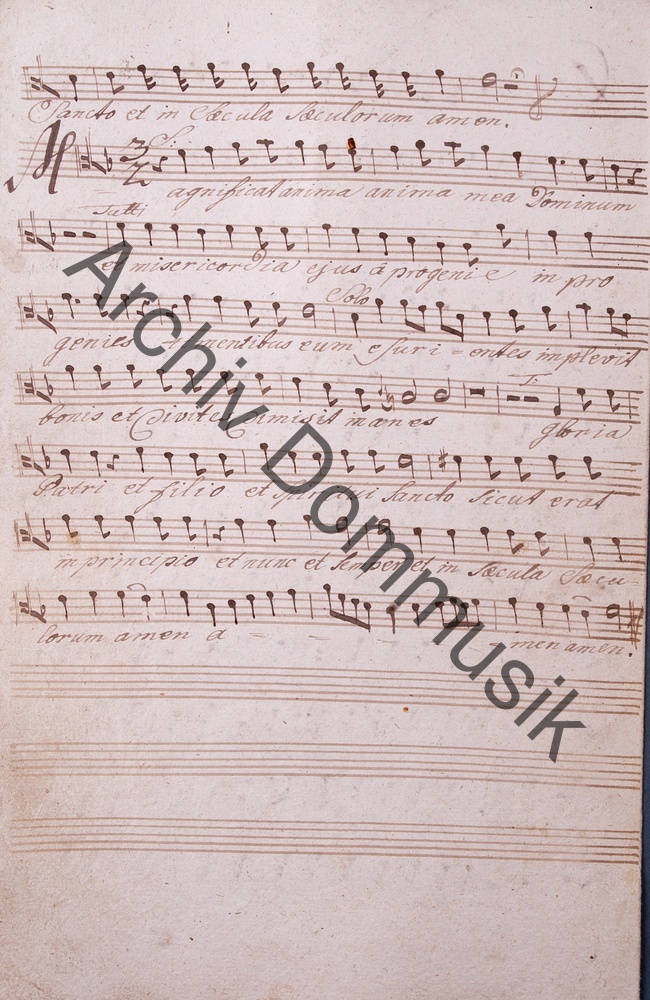 Sancto et in Sæcula Sæculorum amen.
S:
Magnificat anima anima mea Dominum
Tutti
et misericordia ejus a progenie in pro
Solo
genies timentibus eum esurientes implevit
T:
bonis et Divites dimisit inanes gloria
Patri et filio et Spiritui Sancto Sicut erat
in principio et nunc et Semper et in Sæcula Sæcu-
lorum amen a - - - - - men amen.
Archiv Dommusik